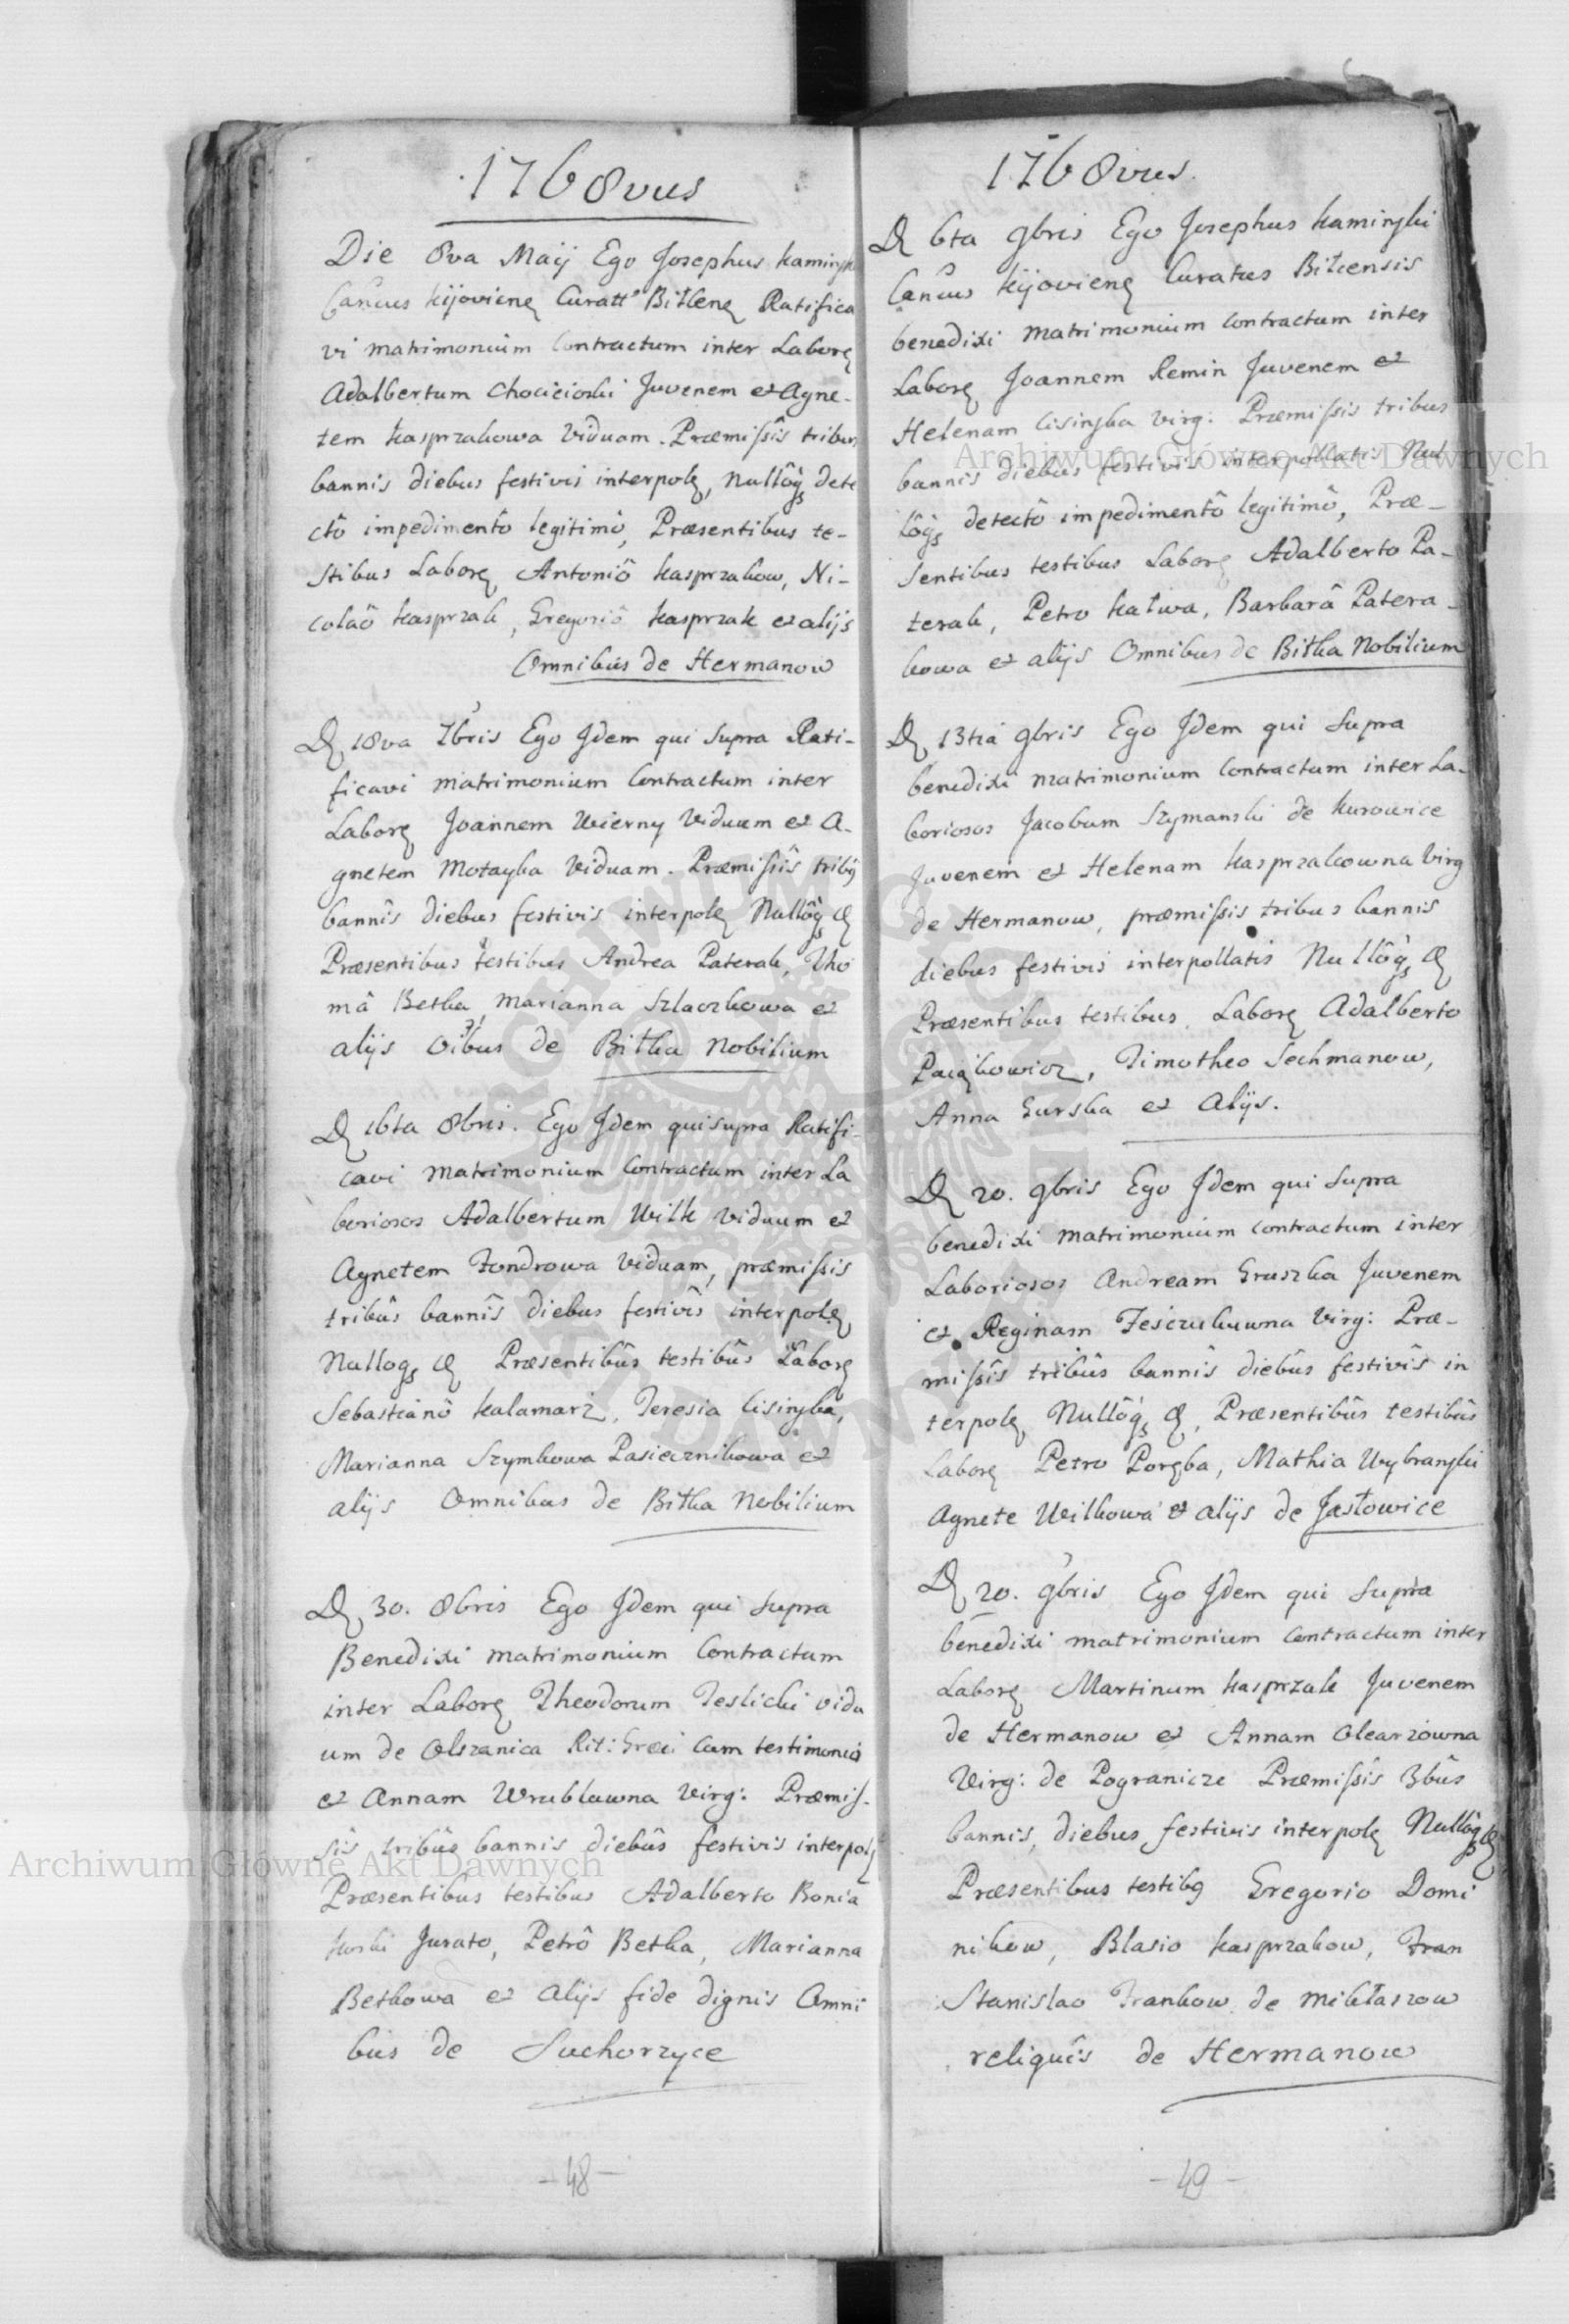 1768vus
Die 8va Maij Ego Josephus Kamińsk
Cancus Kijovien Curatt Bitlen Ratifica
vi matrimonium Contractum inter Labor
Adalbertum Chocicioski Juvenem et Agne-
tem Kasprzakowa Viduam. Præmissîs tribus
bannis diebus festivis interpol, nullôq dete
ctô impedimentô legitimô, Præsentibus te-
stibus Labor Antoniô Kasprzakow, Ni-
colaô Kasprzak, Gregoriô Kasprzak et alijs
Omnibus de Hermanow
D 18va 7bris Ego Jdem qui supra Rati-
ficavi matrimonium Contractum inter
Labor Joannem Wierny Viduum et A-
gnetem Motayka Viduam. Præmissîs tribq
bannîs diebus festivis interpol Nullôq &
Præsentibus testibus Andrea Paterak, Tho
mâ Betka, Marianna Szlaczkowa et
alijs oîbus de Bitka Nobilium
D 16ta 8bris. Ego Jdem qui supra Ratifi-
cavi matrimonium Contractum inter La
boriosos Adalbertum Wilk Viduum et
Agnetem Fondrowa Viduam, præmissis
tribûs bannîs diebus festivîs interpol
Nulloq & Præsentibûs testibûs Labor
Sebastianô Kalamarz, Teresia Lisinska,
Marianna Szymkowa Pasiecznikowa et
alijs Omnibus de Bitka Nobilium
D 30. 8bris Ego Jdem qui supra
Benedixi matrimonium Contractum
inter Labor Theodorum Teslicki vidu
um de Olszanica Rit: Græci Cum testimonio
et Annam Wrublowna Virg: Præmis-
sîs tribûs bannis diebûs festivis interpol
Præsentibus testibus Adalberto Bonia
koski Jurato, Petrô Betka, Marianna
Betkowa et Alijs fide dignis Omni
bus de Suchorzyce
-48-
1768vus.
D 6ta 9bris Ego Josephus Kaminski
Cancus Kijovien Curatus Bitcensis
benedixi matrimonium Contractum inter
Labor Joannem Remin Juvenem et
Helenam Lisinska virg: Præmissis tribus
bannis diebus festivis interpollatis Nul
lôq detectô impedimentô legitimô, Præ-
sentibus testibus Labor Adalberto Pa-
terak, Petro Kałwa, Barbarâ Patera-
kowa et alijs Omnibus de Bitka Nobilium
D 13tia 9bris Ego Jdem qui supra
benedixi matrimonium Contractum inter La-
boriosos Jacobum Szymanski de Kurowice
Juvenem et Helenam Kasprzakowna Virg
de Hermanow, præmissis tribus bannis
diebus festivis interpollatis Nullôq &
Præsentibus testibus Labor Adalberto
Timotheo Sechmanow,
Anna Gurska et Alijs.
D 20. 9bris Ego Jdem qui supra
benedixi matrimonium contractum inter
Laboriosos Andream Gruszka Juvenem
et Reginam Fesczukuwna Virg: Præ-
missîs tribûs bannîs diebûs festivîs in
terpol, Nullôq &, Præsentibûs testibûs
Labor Petro Poręba, Mathia Wybranski
Agnete Wilkowa et alijs de Jasłowice
D 20. 9bris Ego Jdem qui supra
benedixi matrimonium Contractum inter
Labor Martinum Kasprzak Juvenem
de Hermanow et Annam Olearzowna
Virg: de Pogranicze Præmissîs 3bûs
bannis, diebus festivis interpol Nullôq &
Præsentibus testibq Gregorio Domi
nikow, Blasio Kasprzakow, Fran
Stanislao Frankow de Mikłaszow
reliquîs de Hermanow
-49-
Archiwum Główne Akt Dawnych
Archiwum Główne Akt Dawnych
ARCHIWUM GŁÓWNE AKT DAWNYCH